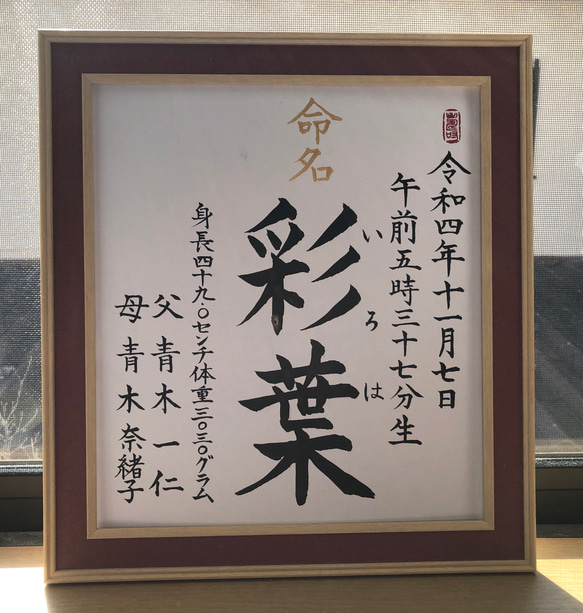 令和四年十一月七日
午前五時三十七分生
命名
彩葉
いろは
身長四十九.〇センチ体重三〇三〇グラム
父 青木 一仁
母 青木 奈緒子